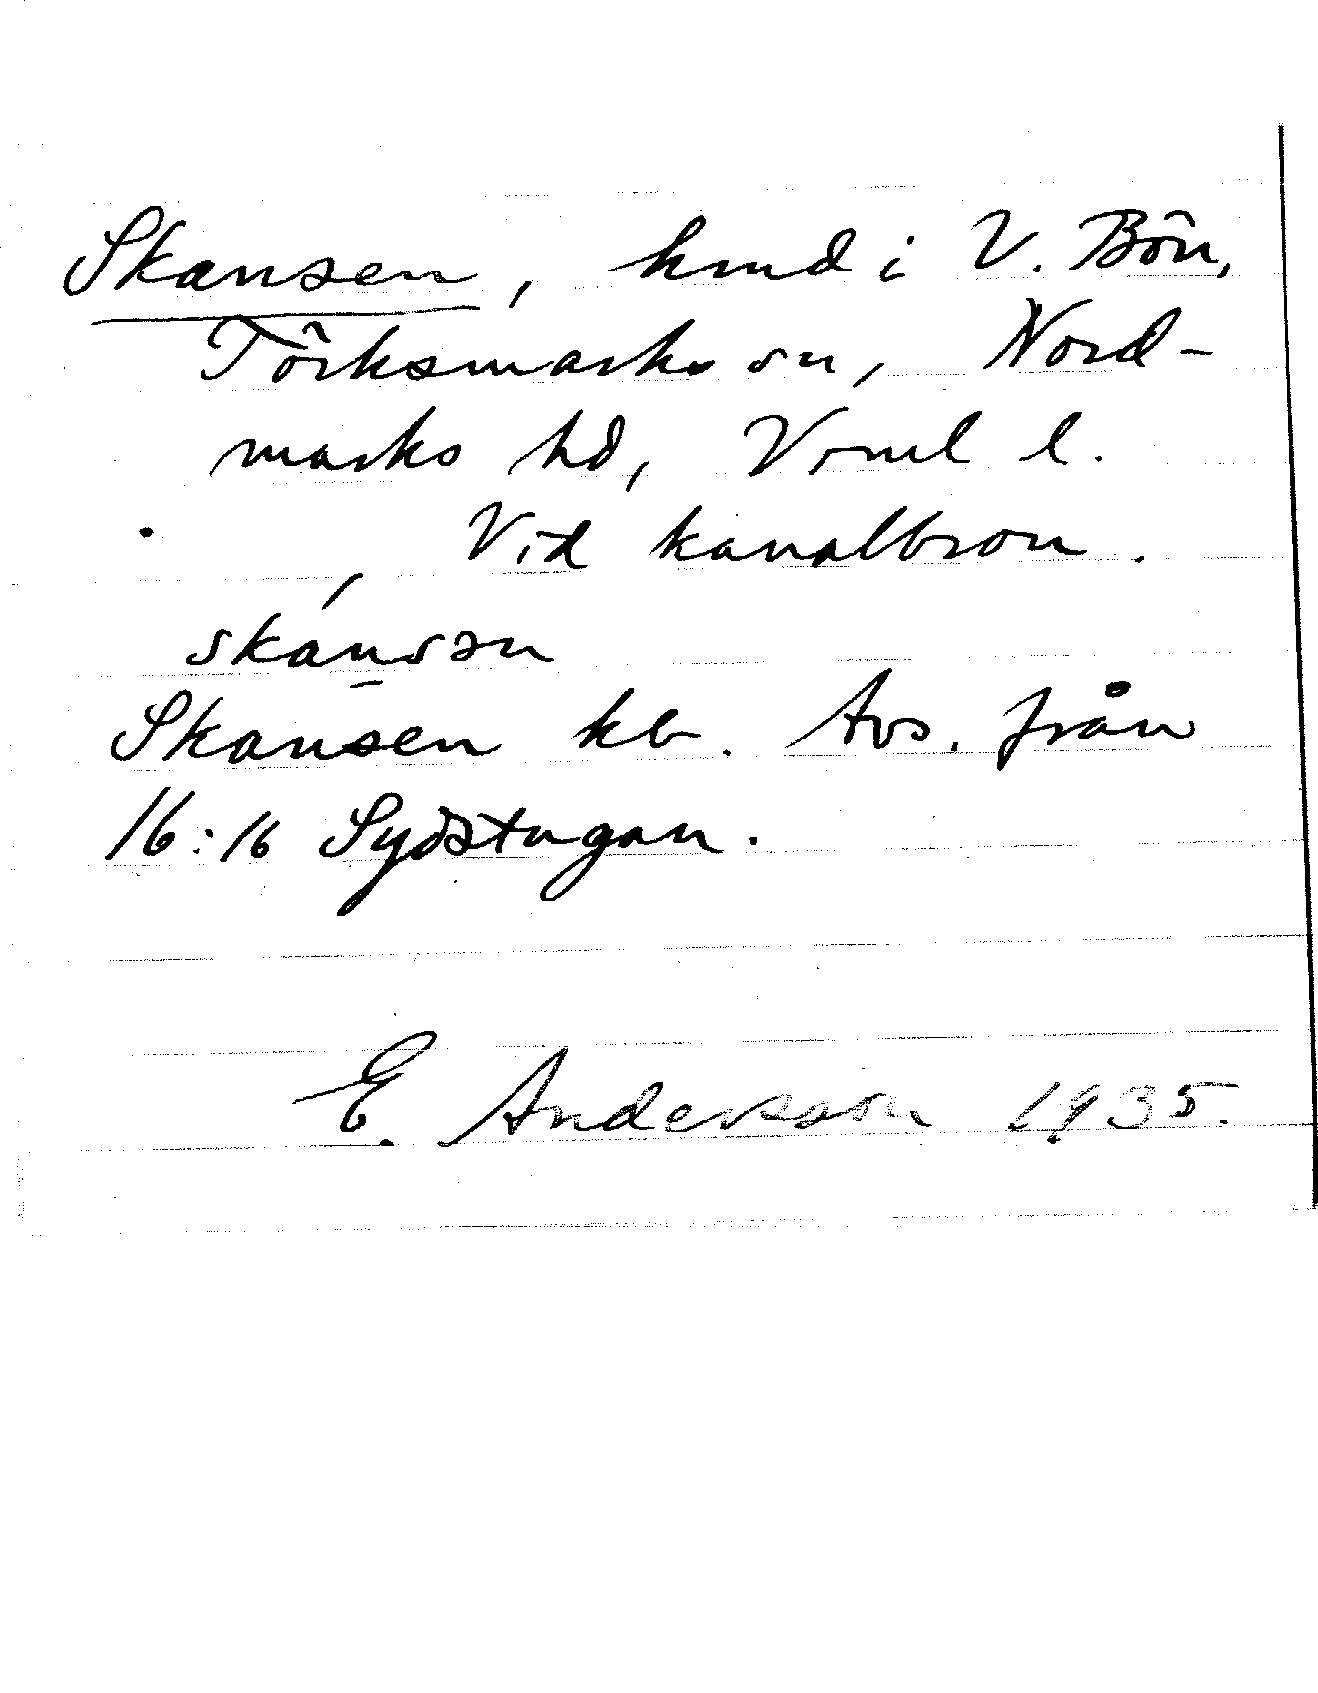 Skansen, hmd i V. Bön,
Töcksmarks sn, Nord-
marks hd, Vrml l.
Vid kanalbron.
skánsən
Skansen kb. Avs. från
16:16 Sydstugan.
E. Andersson 1935.